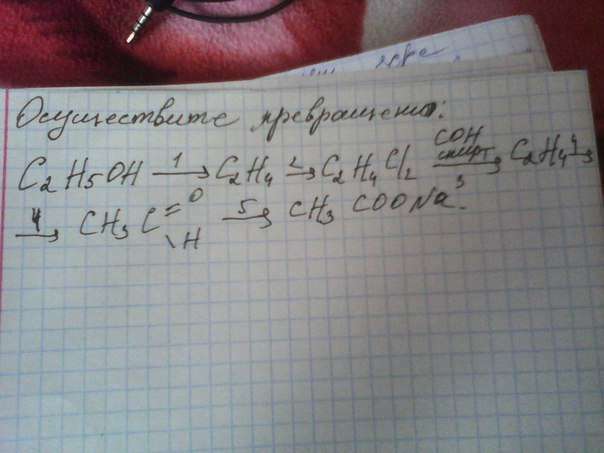 Осуществите превращения:
C₂H₅OH —1→ C₂H₄ —2→ C₂H₄Cl₂ —COH спирт 3→ C₂H₄ —4→
—4→ CH₃C=O \H —5→ CH₃COONa.